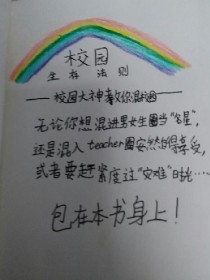 校园
生存法则
——校园大神教你混校园
无论你想混进男女生圈当“名星”，
还是混入teacher圈安然地享受，
或者要赶紧度过“灾难”日子……
包在本书身上！